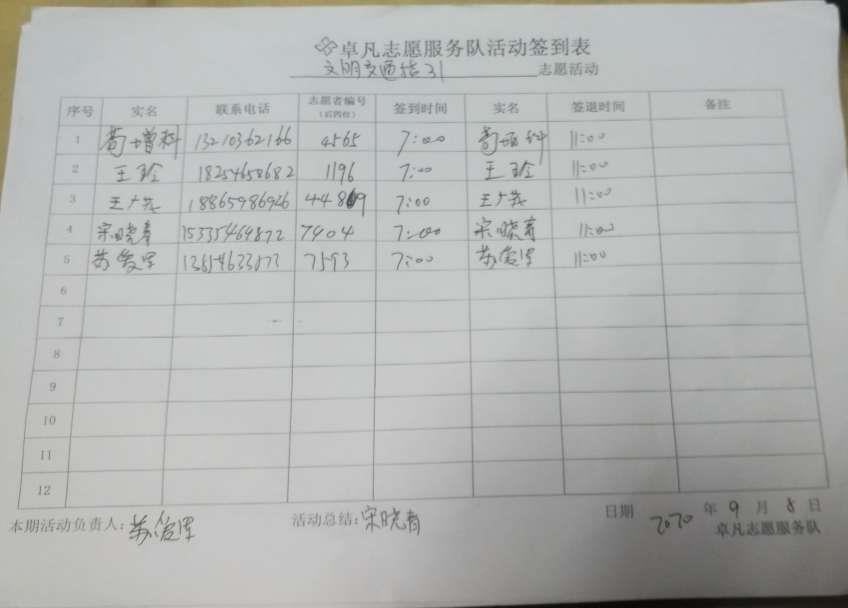 卓凡志愿服务队活动签到表
文明交通指引 志愿活动
序号 实名 联系电话 志愿者编号（后四位） 签到时间 实名 签退时间 备注
1 荀增科 13210362166 4565 7:00 荀增科 11:00
2 王玲 18254658682 1196 7:00 王玲 11:00
3 王广英 18865986926 4489 7:00 王广英 11:00
4 宋晓青 15335464872 7404 7:00 宋晓青 11:00
5 苏俊厚 13654633877 7593 7:00 苏俊厚 11:00
6
7
8
9
10
11
12
本期活动负责人：苏俊厚 活动总结：宋晓青 日期 2020 年 9 月 8 日
卓凡志愿服务队